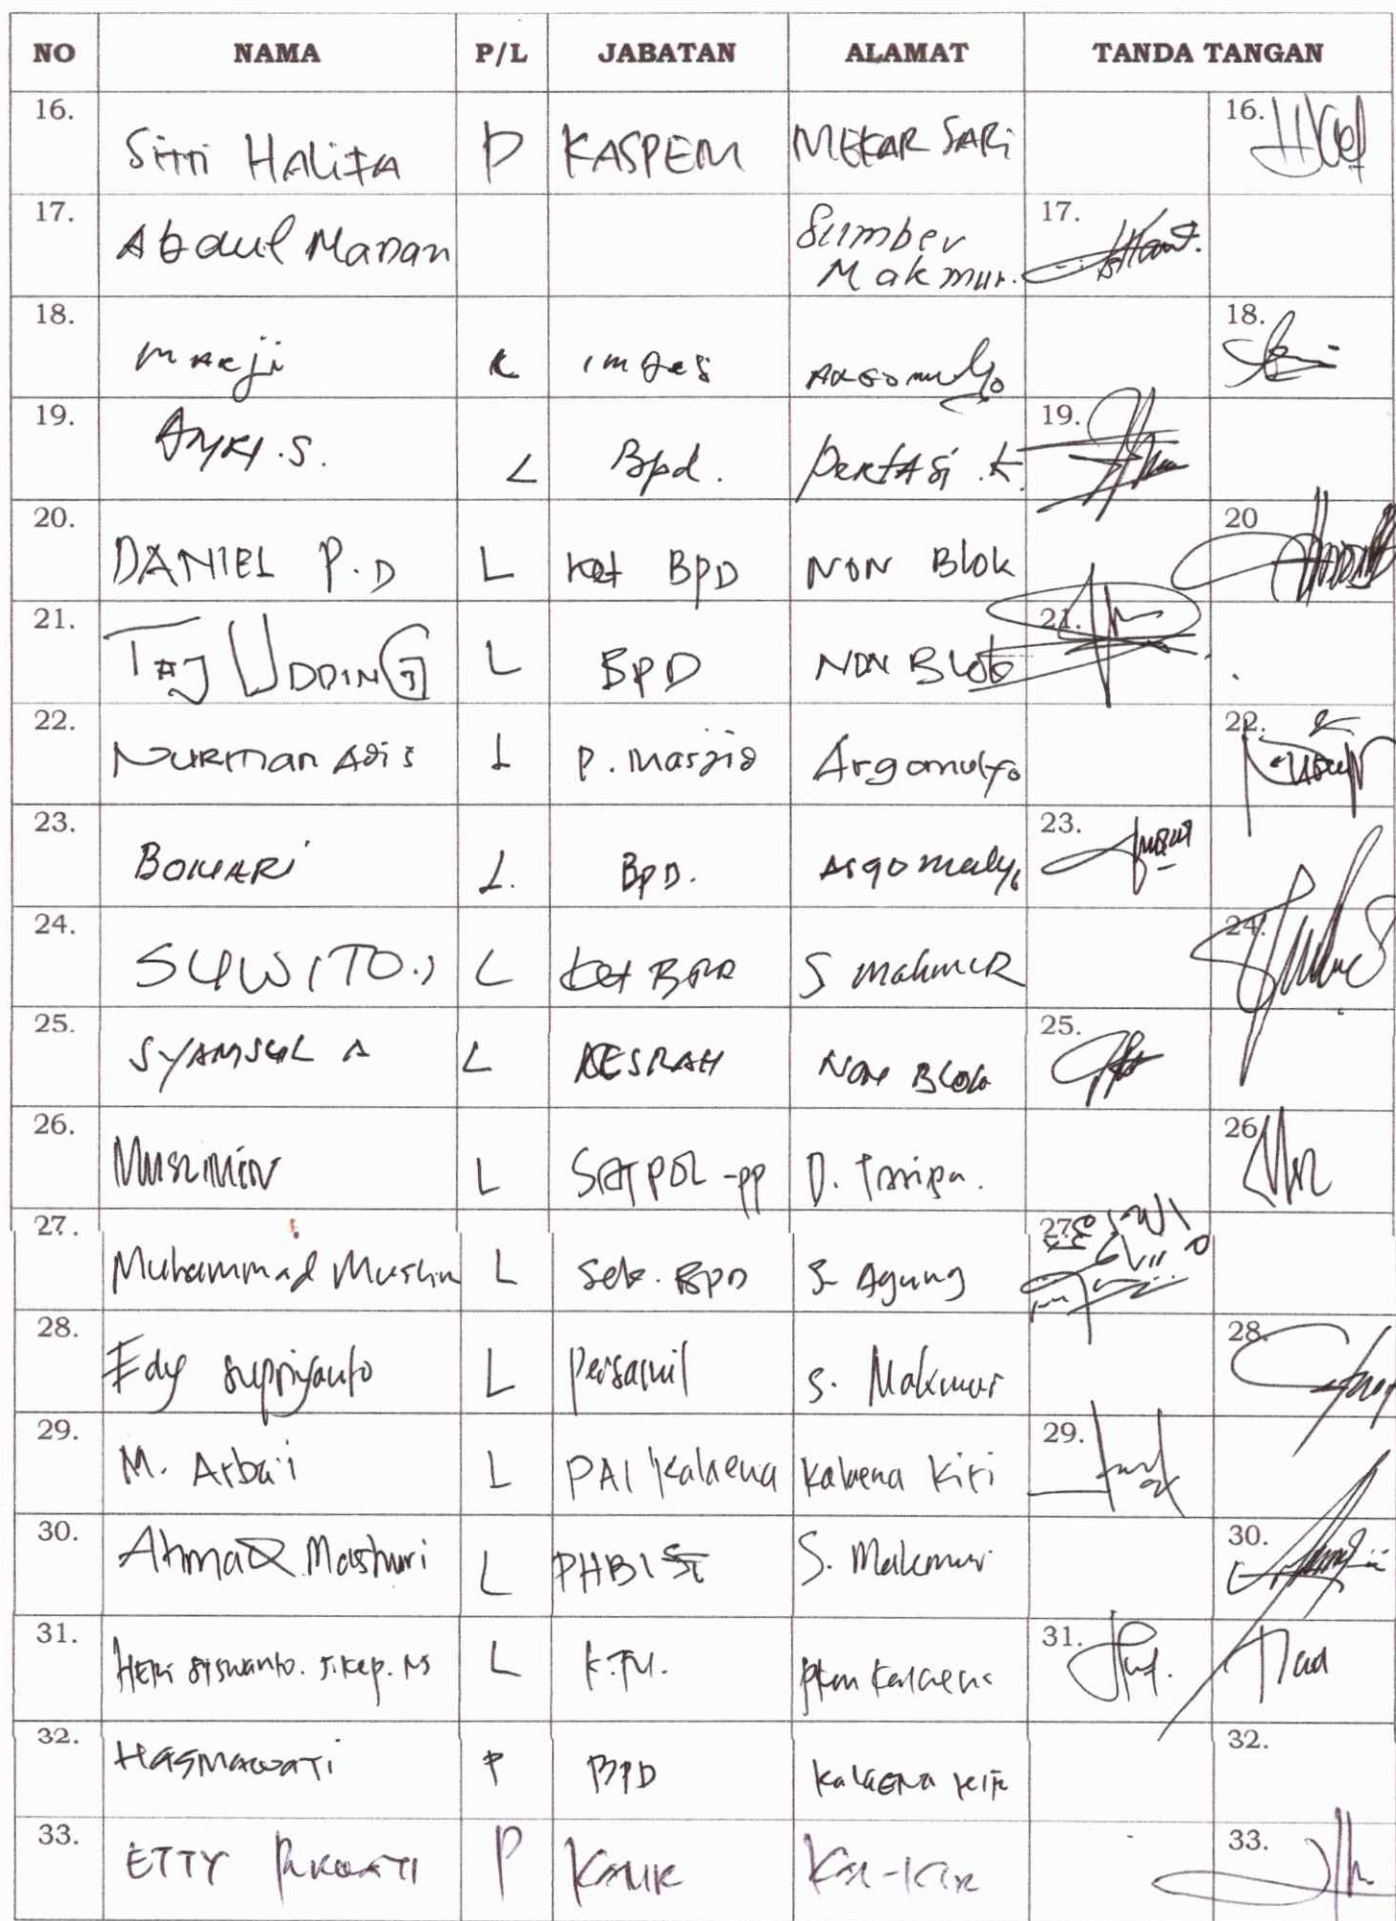 NO NAMA P/L JABATAN ALAMAT TANDA TANGAN
16. Sitti HALIFA P KASPEM MEKAR SARI 16.
17. Abdul Manan Sumber Makmur. 17.
18. Marji L imdes Argomulyo 18.
19. S. L Bpd. 19.
20. DANIEL P.D L Ket BPD NON Blok 20
21. TAJ UDDING L BPD NON Blok 21.
22. NURMAN Adis L P. Masjid Argomulyo 22.
23. BOHARi L. BPD. Argomulyo 23.
24. SUWITO.) L Ket BPD S Makmur 24.
25. SYAMSUL A L KESRAH NON BLok 25.
26. Muslimin L SATPOL-pp D. 26.
27. Muhammad Muslim L Sek. BPD S. Agung 27.
28. Edy Supriyanto L S. Makmur 28.
29. M. Arba'i L PAI Kalaena Kalaena Kiri 29.
30. Ahmad Mashuri L PHBI S. Makmur 30.
31. HERi Siswanto. S.Kep. NS L K.TU. pkm Kalaena 31.
32. HASMAWATi P BPD KalaENA Kiri 32.
33. ETTY P KAUR Kal-Kir 33.